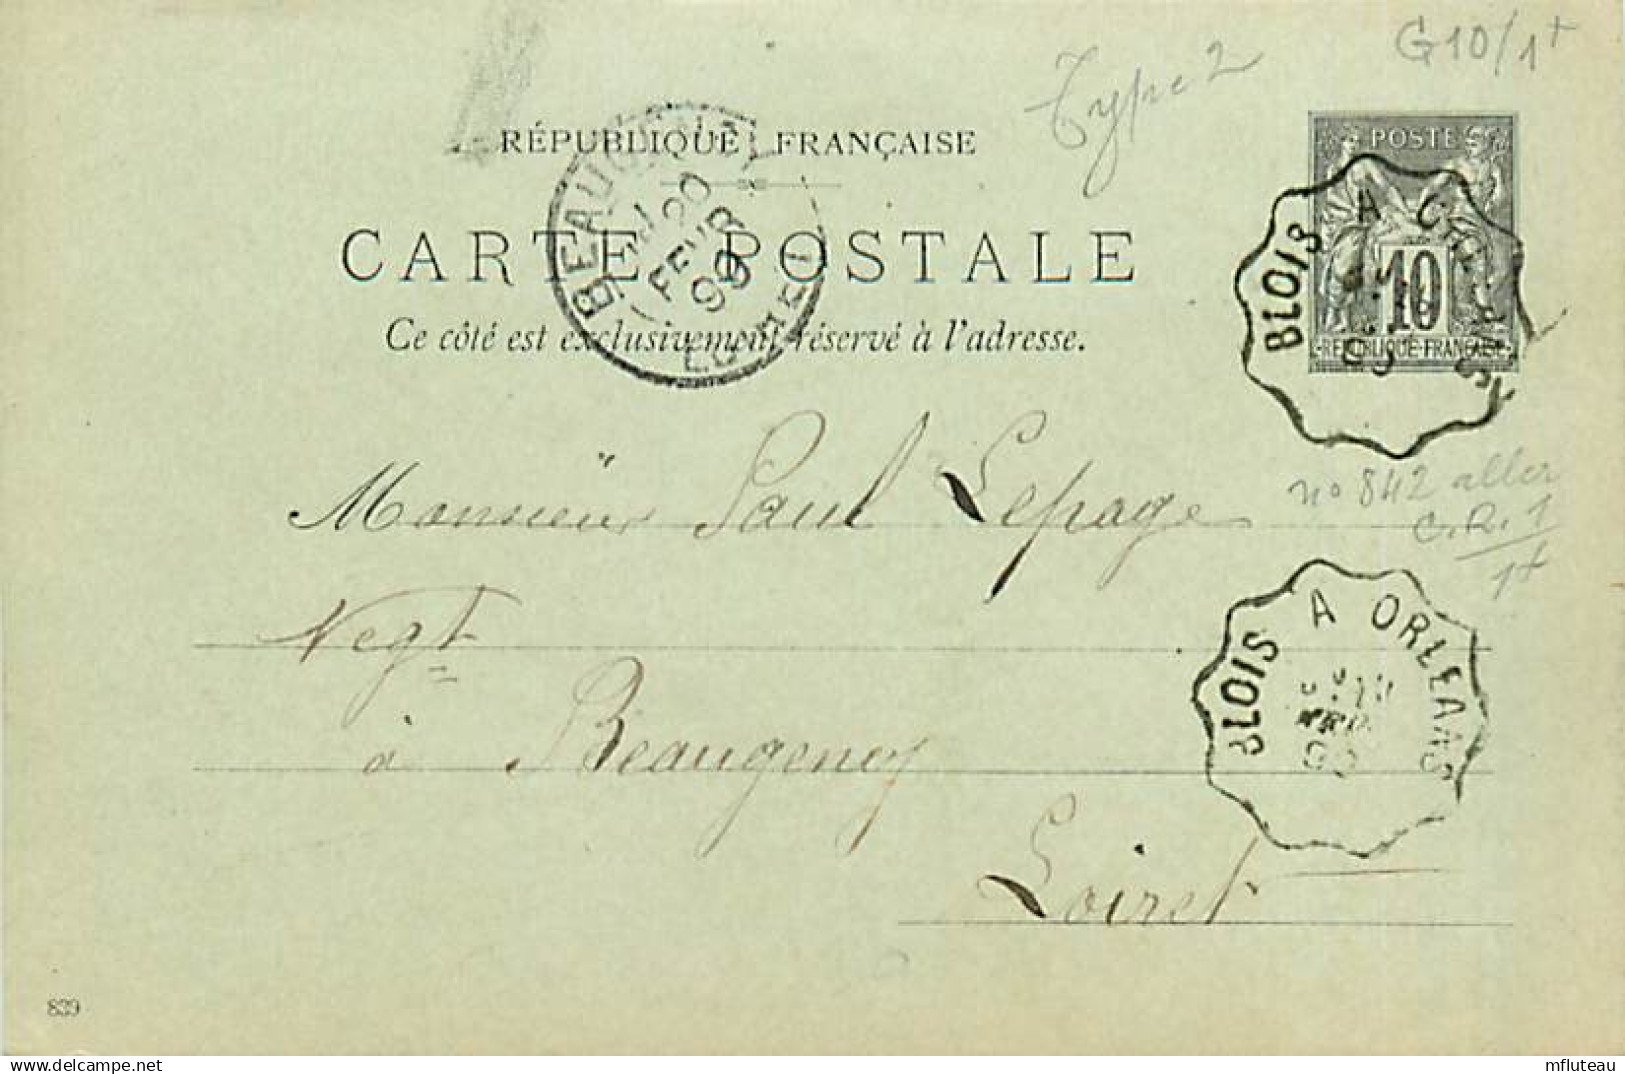 G10/1+
Type 2
RÉPUBLIQUE FRANÇAISE
CARTE POSTALE
Ce côté est exclusivement réservé à l'adresse.
POSTE
10
REPUBLIQUE FRANÇAISE
BEAUGENCY
20
FEVR
99
LOIRET
BLOIS A ORLEANS
Monsieur Paul Lepage
no 842 aller
C.R.1
1+
Negt
à Beaugency
Loiret
BLOIS A ORLEANS
839
Delcampe.net
mfluteau